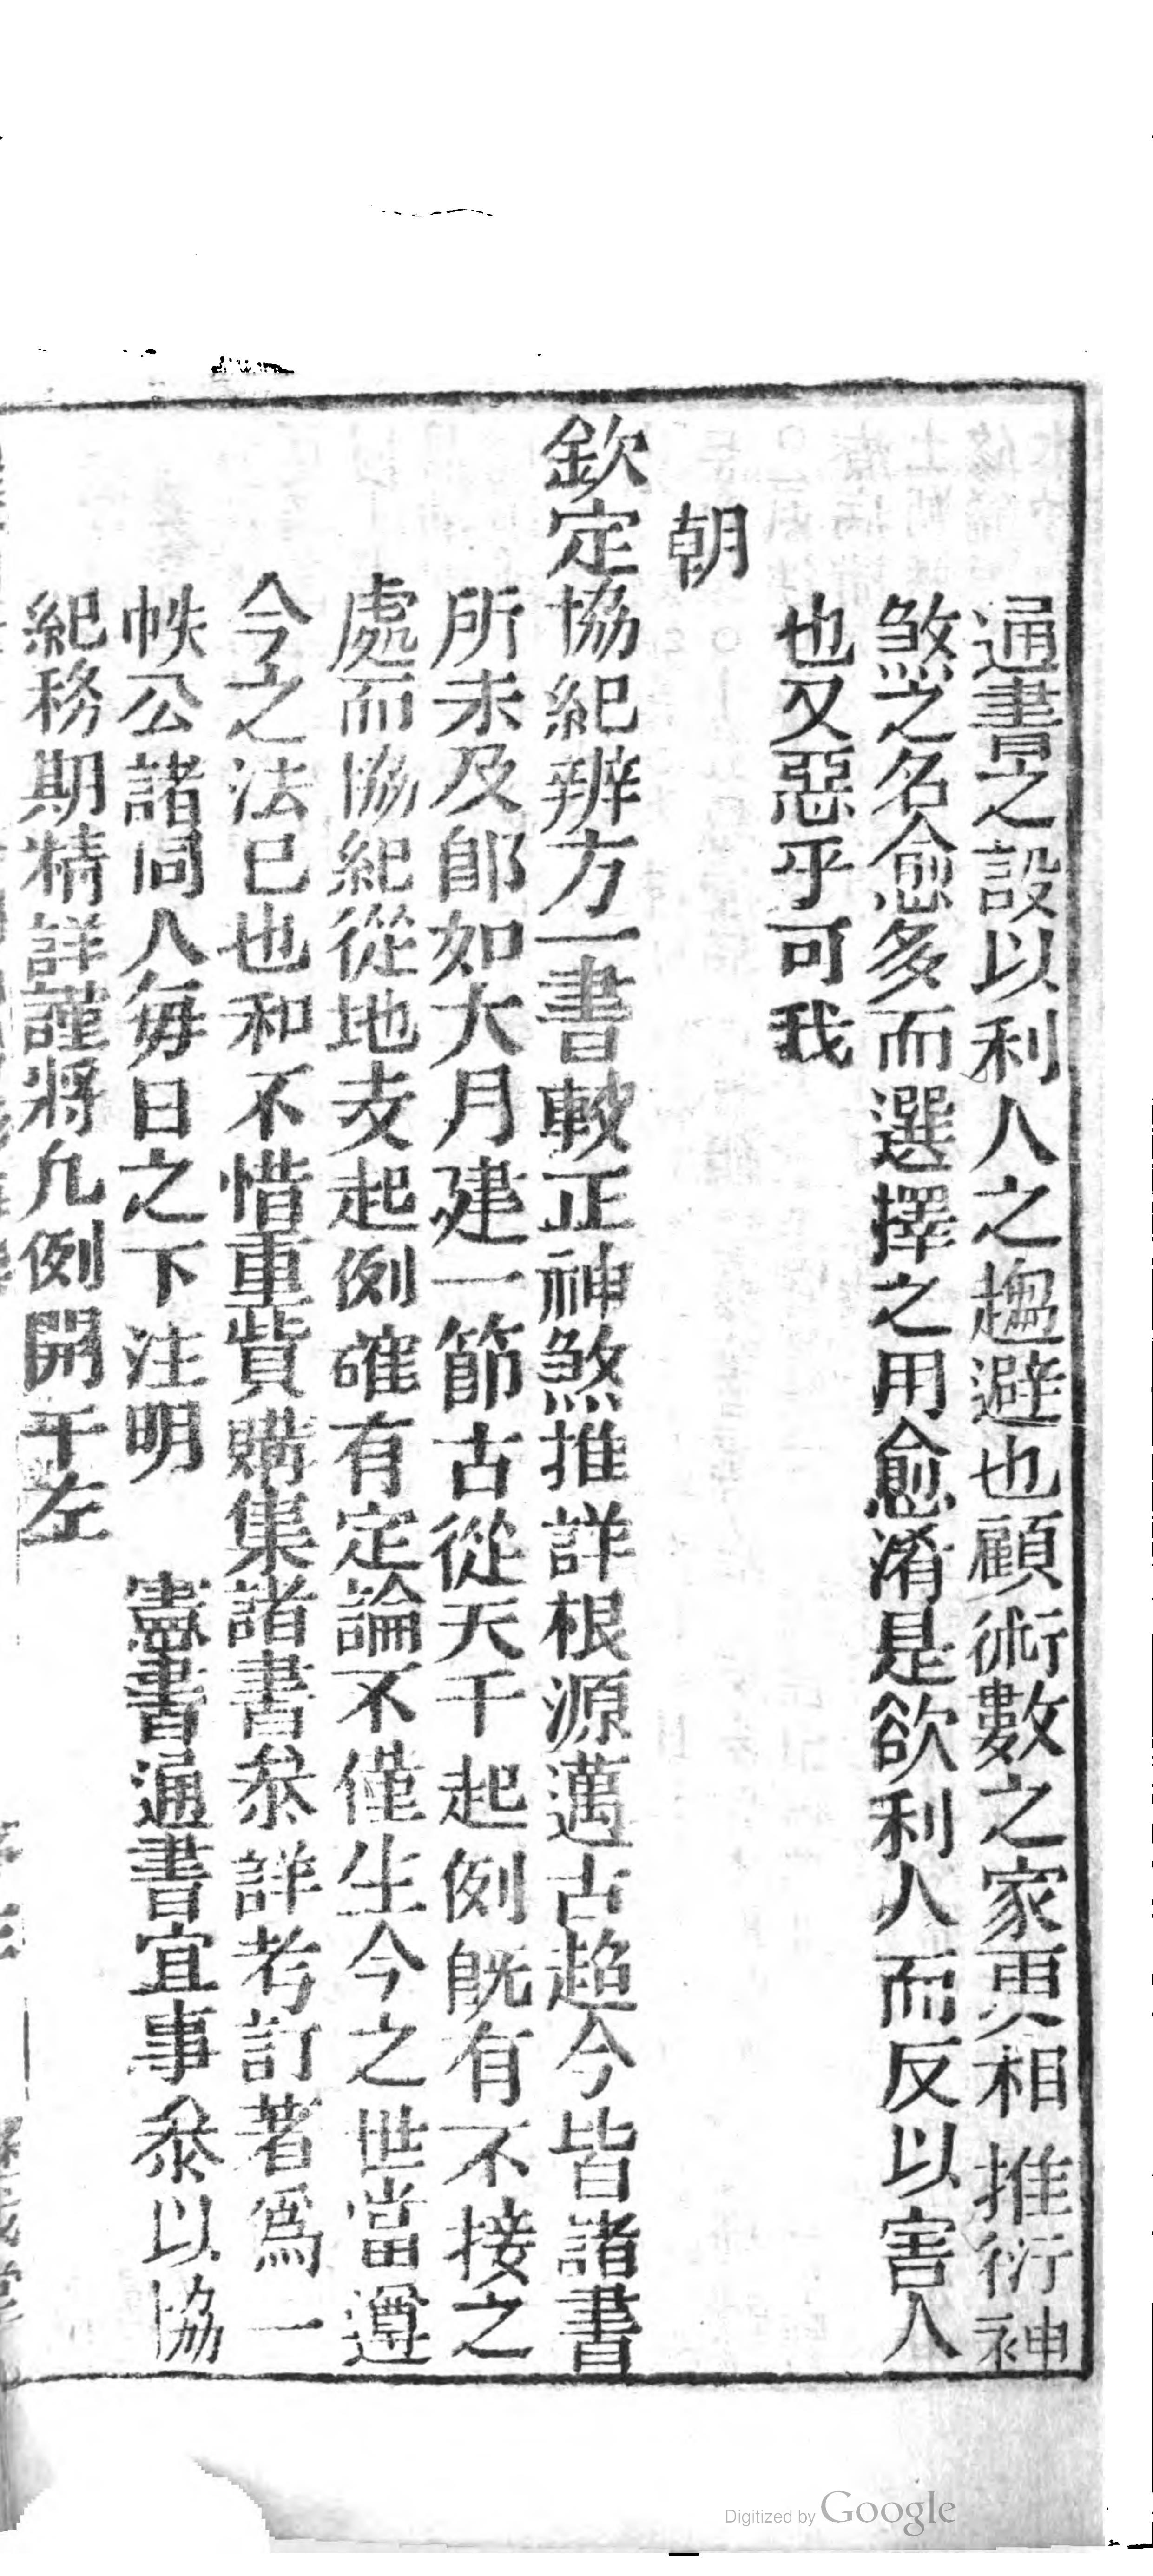 通書之設以利人之趨避也顧術數之家更相推衍神
煞之名愈多而選擇之用愈淆是欲利人而反以害人
也又惡乎可我
朝
欽定協紀辨方一書較正神煞推詳根源邁古超今皆諸書
所未及卽如大月建一節古從天干起例旣有不接之
處而協紀從地支起例確有定論不僅生今之世當遵
今之法已也和不惜重貲購集諸書叅詳考訂著爲一
帙公諸同人每日之下注明　憲書通書宜事叅以協
紀務期精詳謹將凢例開于左
Digitized by Google